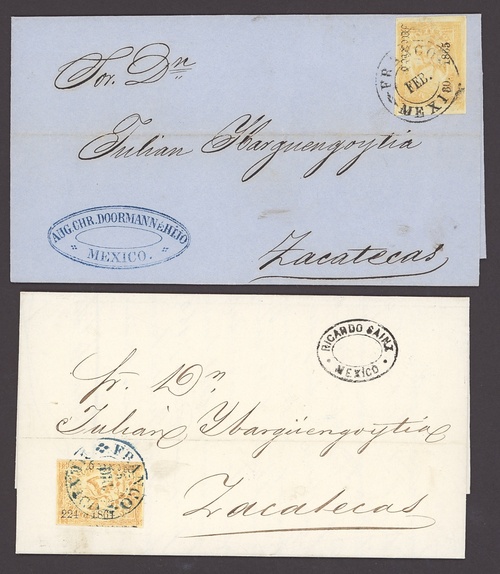 Sor. Dn
Julian Ybarguengoytia
Zacatecas
FRANCO
FEB.
MEXICO
1865
AUG. CHR. DOORMANN é HIJO
MEXICO.
RICARDO SAINZ
MEXICO
Sr. Dn
Julian Ybargüengoytia
Zacatecas
FRANCO
224